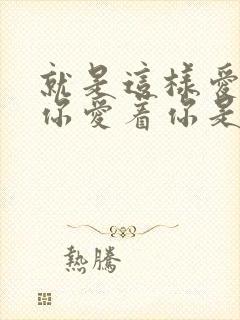 就是這樣愛
你愛着你是
熱騰